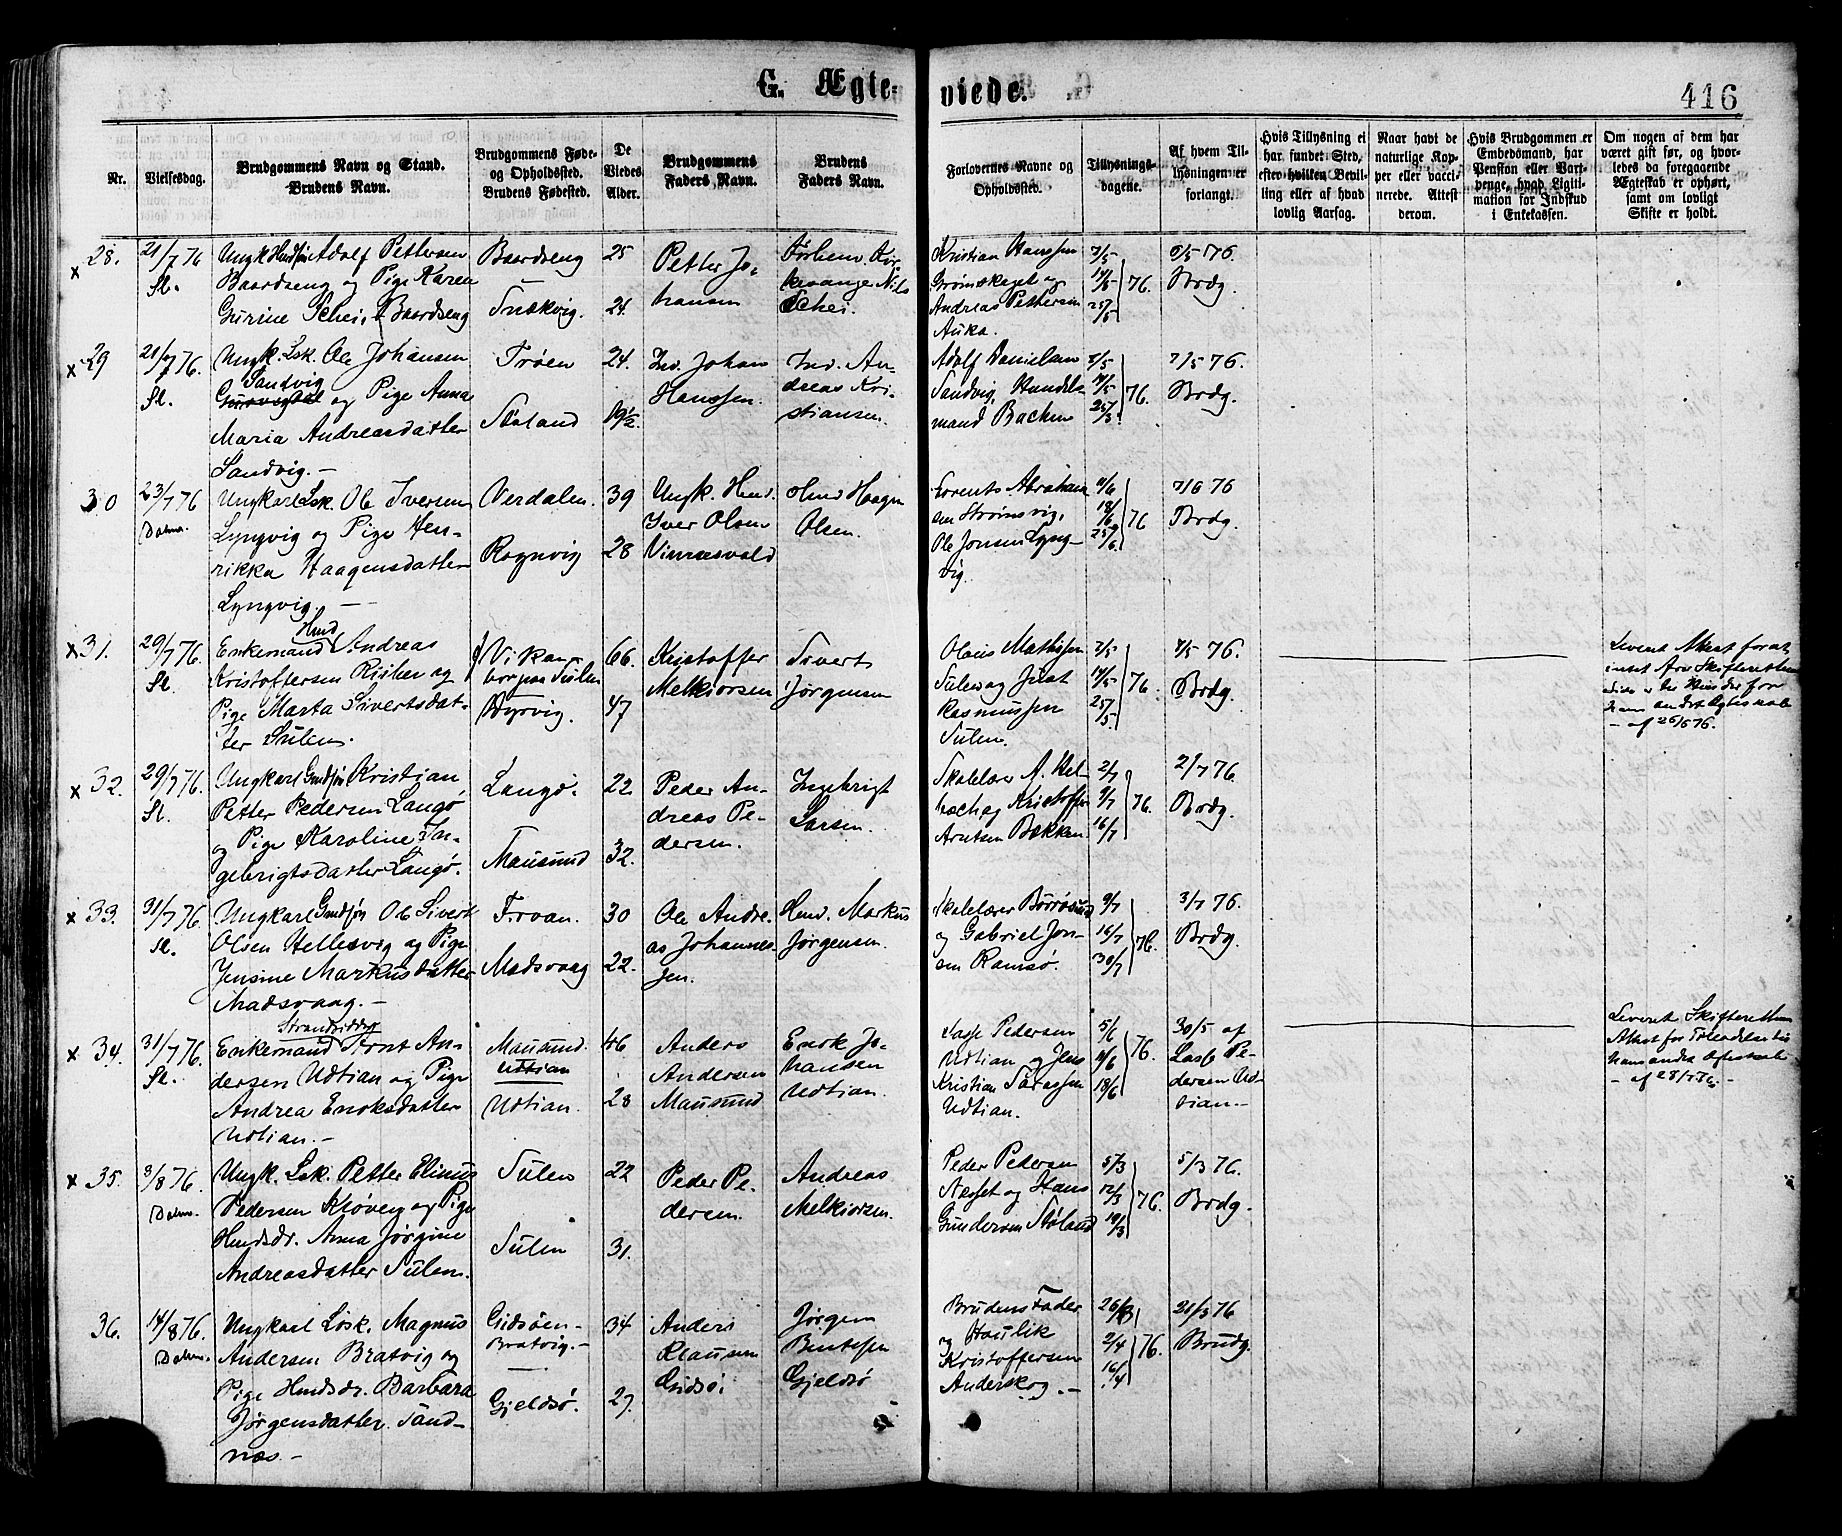 G. Ægte-viede.
416
Nr.
Vielsesdag.
Brudgommens Navn og Stand.
Brudens Navn.
Brudgommens Føde-
og Opholdssted.
Brudens Fødested.
De
Viedes
Alder.
Brudgommens
Faders Navn.
Brudens
Faders Navn.
Forlovernes Navne og
Opholdssted.
Tillysnings-
dagene.
Af hvem Til-
lysningen er
forlangt.
Hvis Tillysning ei
har fundet Sted,
efter hvilken Bevil-
ling eller af hvad
lovlig Aarsag.
Naar havt de
naturlige Kop-
per eller vacci-
nerede. Attest
derom.
Hvis Brudgommen er
Embedsmand, har
Pension eller Vart-
penge, hvad Ligiti-
mation for Indskud
i Enkekassen.
Om nogen af dem har
været gift før, og hvor-
ledes da foregaaende
Ægteskab er ophørt,
samt om lovligt
Skifte er holdt.
x 28. 21/7 76 Sl.
Ungk. Adolf Pettersen
Baardseng og Pige Karen
Gurine Schei, Baardseng
Baardseng
25
24
Petter Jo-
hansen
Nils
Schei.
Kristian Hanssen
og
Andreas Pettersen
Auka.
7/5 14/5 25/5 } 76.
6/5 76.
Brdg.
x 29 21/7 76. Sl.
Ungk. Lsk. Ole Johansen
Sandvig
og Pige Anna
Maria Andreasdatter
Sandvig. –
Trøen
Støland
24.
19½
Ind. Johan
Hanssen.
Ind. An-
dreas Kri-
stiansen.
Adolf Danielsen
Sandvig, Handels-
mand Backen
7/5 14/5 25/5 } 76.
7/5 76.
Brdg.
30 23/7 76 Dolmø.
Ungkarl Lsk. Ole Iversen
Lyngvig og Pige Hen-
rikka Haagensdatter
Lyngvig. —
Verdalen.
Ragnvig
39
28
Ungk. Hmd.
Iver Olsen
Vinnesvald
Hmd Haagen
Olsen.
Lorents Abraham
sen Strømsvig,
Ole Jonsen Lyng-
vig.
11/6 18/6 25/6 } 76
7/6 76
Brdg.
x 31. 29/7 76. Sl.
Hmd
Enkemand Andreas
Kristoffersen og
Pige Marta Sivertsdat-
ter Sulen.
Vikan
bor paa Sulen
Dyrvig.
66.
47
Kristoffer
Melkiorsen
Sivert
Jørgensen
Olaus Mathissen
Sulen og Just
Rasmussen
Sulen.
7/5 14/5 25/5 } 76.
7/5 76.
Brdg.
Levert Attest for at
intet Skifteretten
for
hans andet Ægteskab
– af 26/5 76.
x 32. 29/7 76. Sl.
Ungkarl Gmdsøn Kristian
Petter Pedersen Langø
og Pige Karoline In-
gebrigtsdatter Langø.
Langø.
Mausund
22.
32.
Peder An-
dreas Pe-
dersen.
Ingebrigt
Larsen.
Skolelærer A. Hel-
og Kristoffer
Arntsen Bekken.
2/7 9/7 16/7 } 76.
2/7 76.
Brdg.
x 33. 31/7 76. Sl.
Ungkarl Gmdsøn Ole Sivert
Olsen Hellesvig og Pige
Jensine Markusdatter
Madsvaag. –
Frøan.
Madsvaag
30
22.
Ole Andre-
as Johannes-
sen.
Hmd. Markus
Jørgensen.
Skolelærer Børøsund
og Gabriel Jon-
sen Ramsø.
9/7 16/7 30/7 } 76.
3/7 76.
Brdg.
x 34. 31/7 76. Sl.
Strandsidder
Enkemand Arnt An-
dersen Udtian og Pige
Andrea Enoksdatter
Udtian. –
Mausund.
Udtian
Udtian.
46
28
Anders
Andersen
Mausund
Enok Jo-
hansen
Udtian.
Pedersen
Udtian og Jens
Kristian
Udtian.
5/6 11/6 18/6 } 76.
30/5 af
Pe-
dersen Ud-
tian. –
Levert Skifteretten
Attest for Tilladelse til
hans andet Ægteskab
– af 28/7 76. –
x 35. 3/8 76. Dolmø.
Ungk. Lsk. Petter Elinus
Pedersen Kløven og Pige
Hmdsdr. Anna Jørgine
Andreasdatter Sulen.
Sulen
Sulen
22
31.
Peder Pe-
dersen.
Andreas
Melkiorsen.
Peder Pedersen
Nesset og Hans
Gundersen Støland
5/3 12/3 19/3 } 76.
5/3 76.
Brdg.
36. 14/8 76. Dolmø.
Ungkarl Løsk. Magnus
Andersen Bratvig og
Pige Hmdsdr. Barbara
Jørgensdatter Sand-
næs. –
Gidsøen –
Bratvig. –
Gjeldsø.
34
27.
Anders
Klausen
Gidsø.
Jørgen
Bentsen
Gjeldsø
Brudens Fader
og Haulik
Kristoffersen
Anderskog. –
26/3 2/4 16/4 } 76.
21/3 76
Brudg.